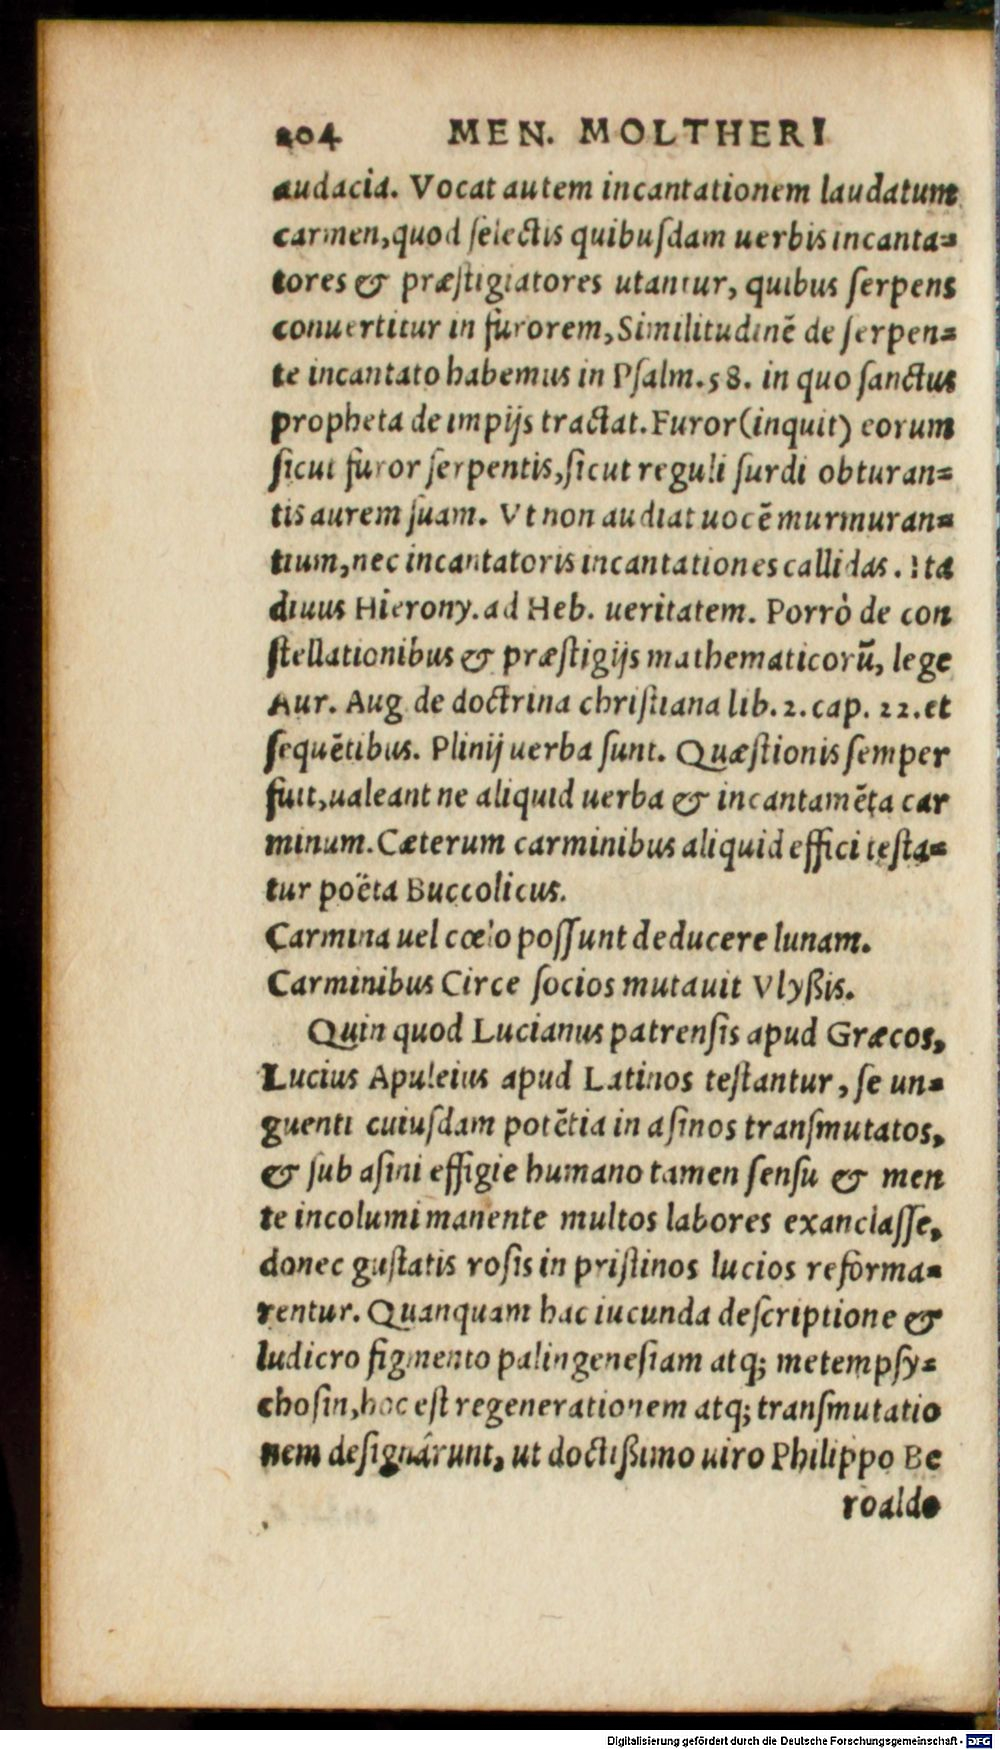 204 MEN. MOLTHERI
audacia. Vocat autem incantationem laudatum
carmen, quod ſelectis quibuſdam uerbis incanta=
tores & præſtigiatores utantur, quibus ſerpens
conuertitur in furorem, Similitudinẽ de ſerpen=
te incantato habemus in Pſalm. 58. in quo ſanctus
propheta de impijs tractat. Furor (inquit) eorum
ſicut furor ſerpentis, ſicut reguli ſurdi obturan=
tis aurem ſuam. Vt non audiat uocẽ murmuran=
tium, nec incantatoris incantationes callidas. Ita
diuus Hierony. ad Heb. ueritatem. Porrò de con
ſtellationibus & præſtigijs mathematicorũ, lege
Aur. Aug de doctrina chriſtiana lib. 2. cap. 22. et
ſequẽtibus. Plinij uerba ſunt. Quæſtionis ſemper
fuit, ualeant ne aliquid uerba & incantamẽta car
minum. Cæterum carminibus aliquid effici teſta=
tur poëta Buccolicus.
Carmina uel cœlo poſſunt deducere lunam.
Carminibus Circe ſocios mutauit Vlyßis.
Quin quod Lucianus patrenſis apud Græcos,
Lucius Apuleius apud Latinos teſtantur, ſe un=
guenti cuiuſdam potẽtia in aſinos tranſmutatos,
& ſub aſini effigie humano tamen ſenſu & men
te incolumi manente multos labores exanclaſſe,
donec guſtatis roſis in priſtinos lucios reforma=
rentur. Quanquam hac iucunda deſcriptione &
ludicro figmento palingeneſiam atq; metempſy=
choſin, hoc eſt regenerationem atq; tranſmutatio
nem deſignârunt, ut doctißimo uiro Philippo Be
roaldo
Digitalisierung gefördert durch die Deutsche Forschungsgemeinschaft - DFG